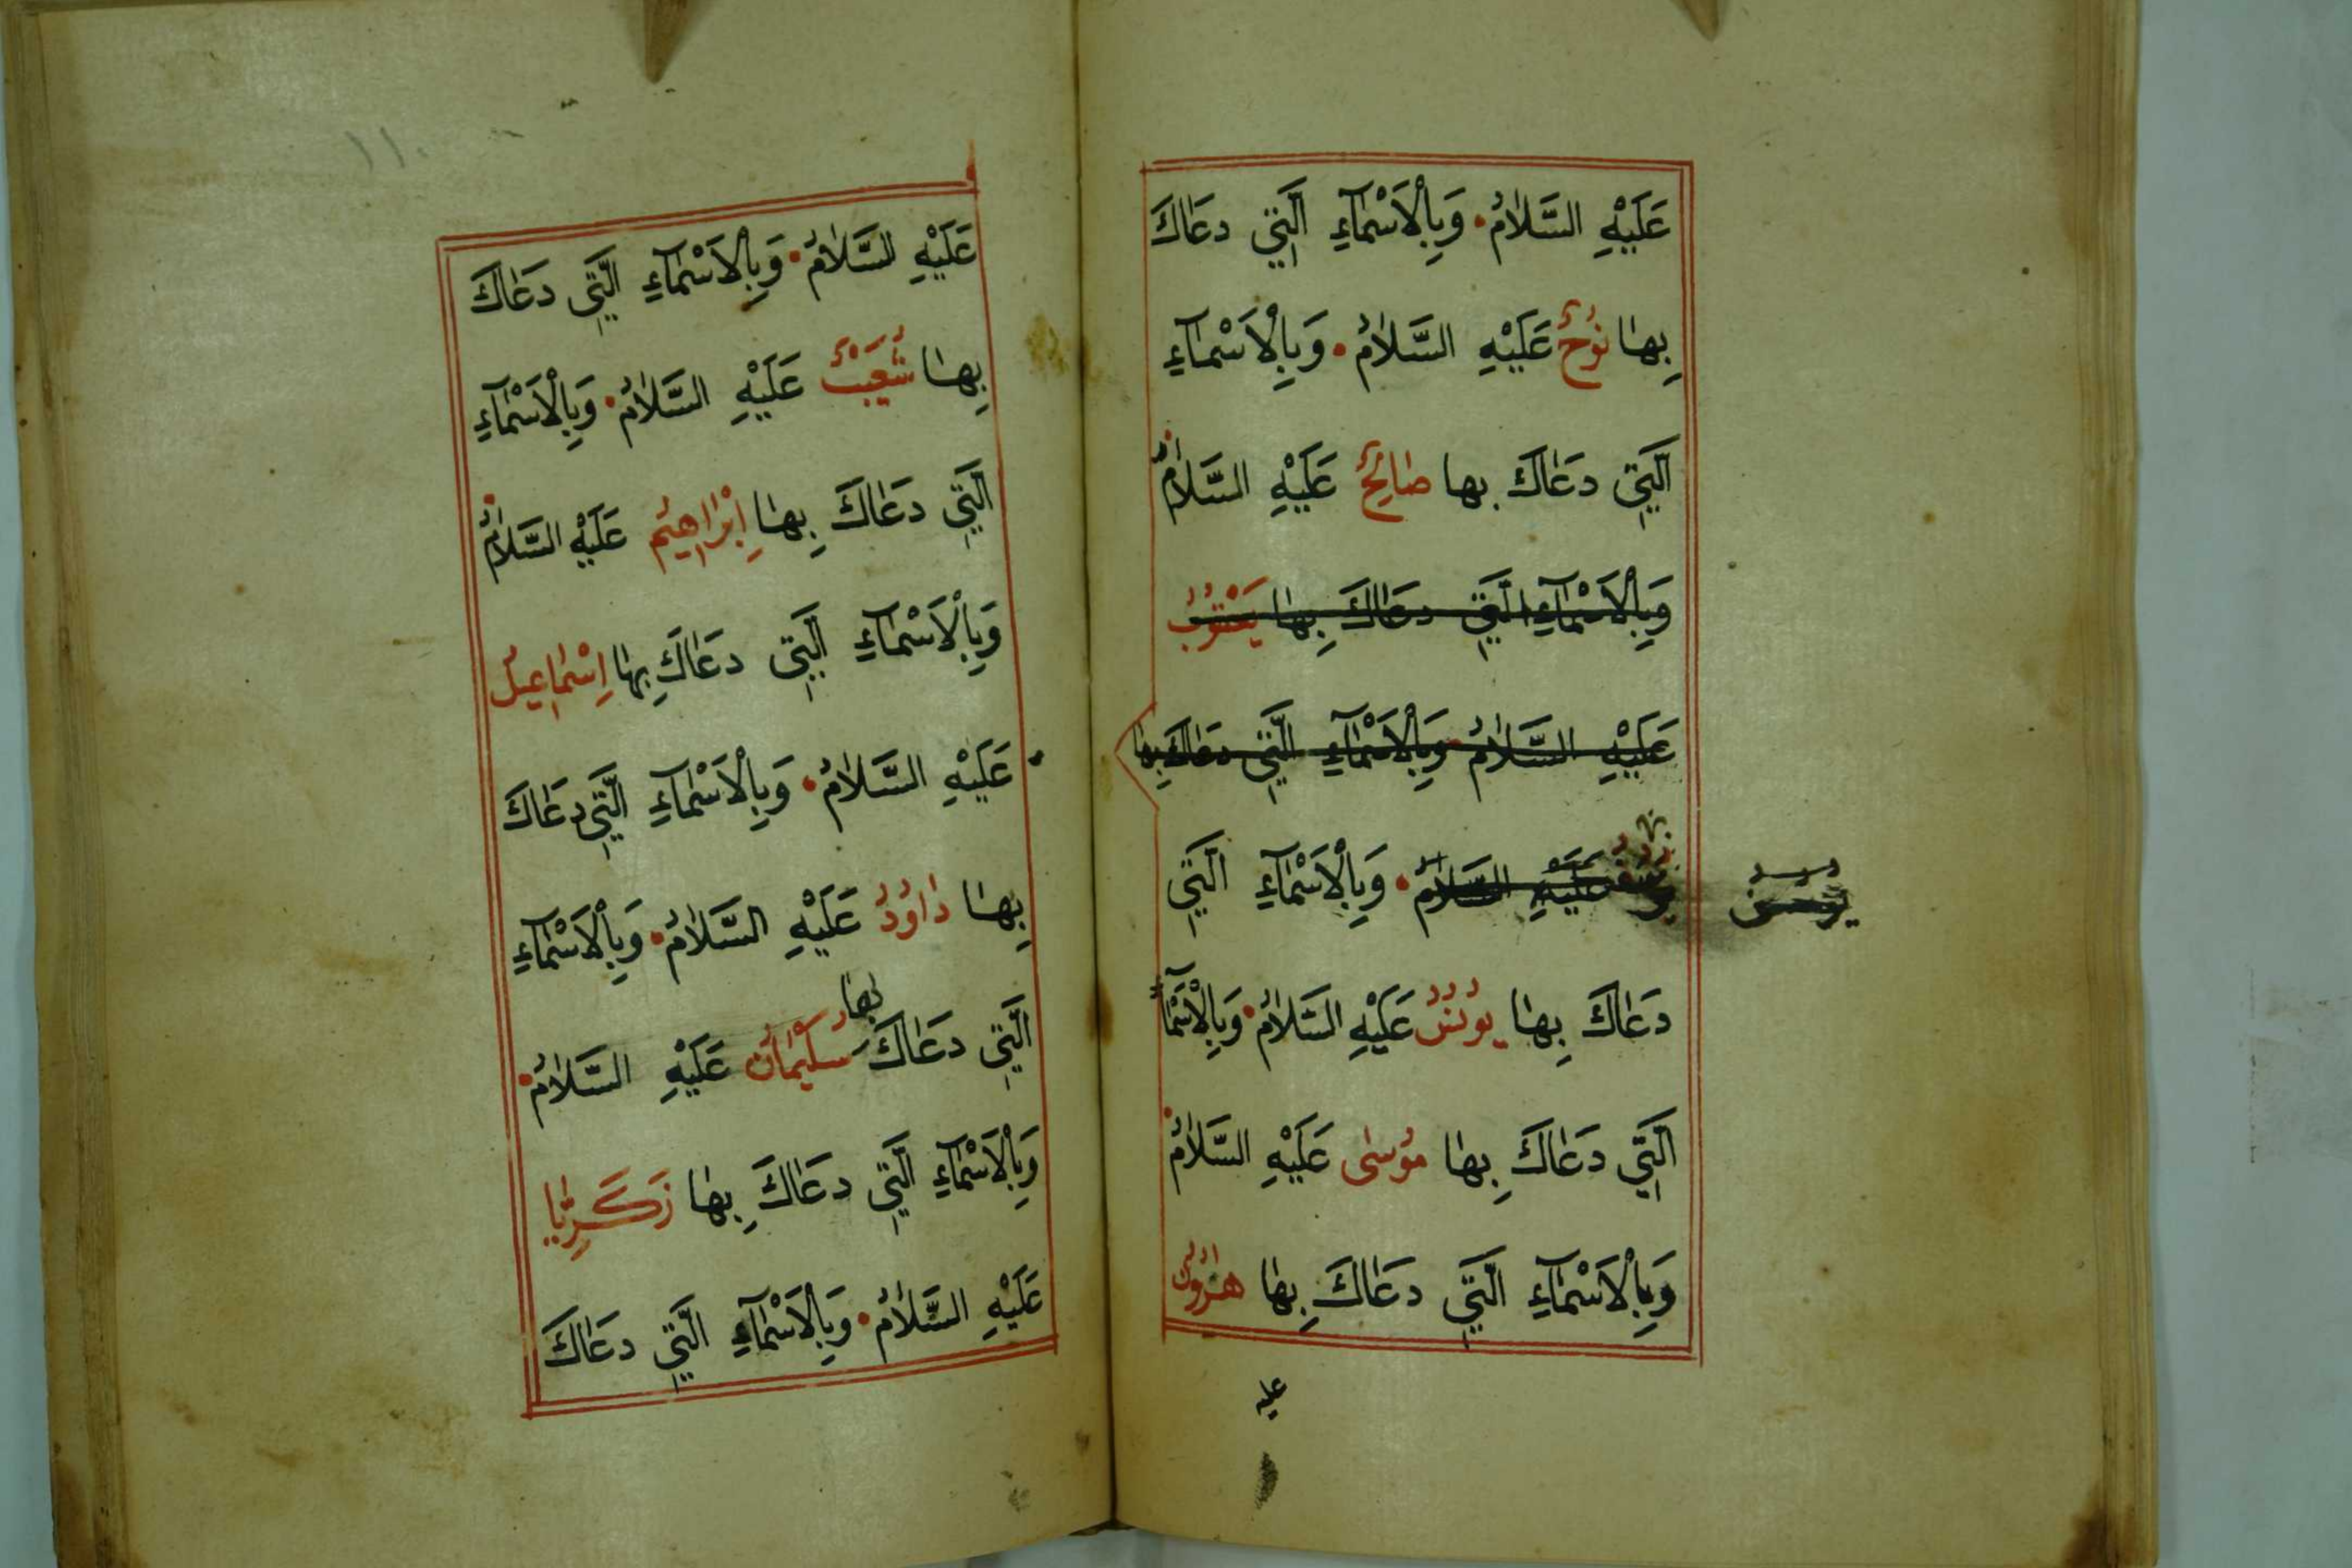 عَلَيْهِ السَّلَامُ وَبِالْاَسْمَآءِ الَّتِي دَعَاكَ
بِهَا نُوحٌ عَلَيْهِ السَّلَامُ وَبِالْاَسْمَآءِ
الَّتِي دَعَاكَ بها صَالِحٌ عَلَيْهِ السَّلَامُ
وَبِالْاَسْمَآءِ الَّتِي دَعَاكَ بِهَا يَعْقُوبُ
عَلَيْهِ السَّلَامُ وَبِالْاَسْمَآءِ الَّتِي دَعَاكَ بِهَا
عَلَيْهِ السَّلَامُ وَبِالْاَسْمَآءِ الَّتِي
دَعَاكَ بِهَا يُونُسُ عَلَيْهِ السَّلَامُ وَبِالْاَسْمَآءِ
الَّتِي دَعَاكَ بِهَا مُوسٰى عَلَيْهِ السَّلَامُ
وَبِالْاَسْمَآءِ الَّتِي دَعَاكَ بِهَا هٰرُونُ
عليه
١١٠
عَلَيْهِ السَّلَامُ وَبِالْاَسْمَآءِ الَّتِي دَعَاكَ
بِهَا شُعَيْبٌ عَلَيْهِ السَّلَامُ وَبِالْاَسْمَآءِ
الَّتِي دَعَاكَ بِهَا اِبْرَاهِيمُ عَلَيْهِ السَّلَامُ
وَبِالْاَسْمَآءِ الَّتِي دَعَاكَ بِهَا اِسْمَاعِيلُ
عَلَيْهِ السَّلَامُ وَبِالْاَسْمَآءِ الَّتِي دَعَاكَ
بِهَا دَاوُدُ عَلَيْهِ السَّلَامُ وَبِالْاَسْمَآءِ
الَّتِي دَعَاكَ بِهَا سُلَيْمَانُ عَلَيْهِ السَّلَامُ
وَبِالْاَسْمَآءِ الَّتِي دَعَاكَ بِهَا زَكَرِيَّا
عَلَيْهِ السَّلَامُ وَبِالْاَسْمَآءِ الَّتِي دَعَاكَ